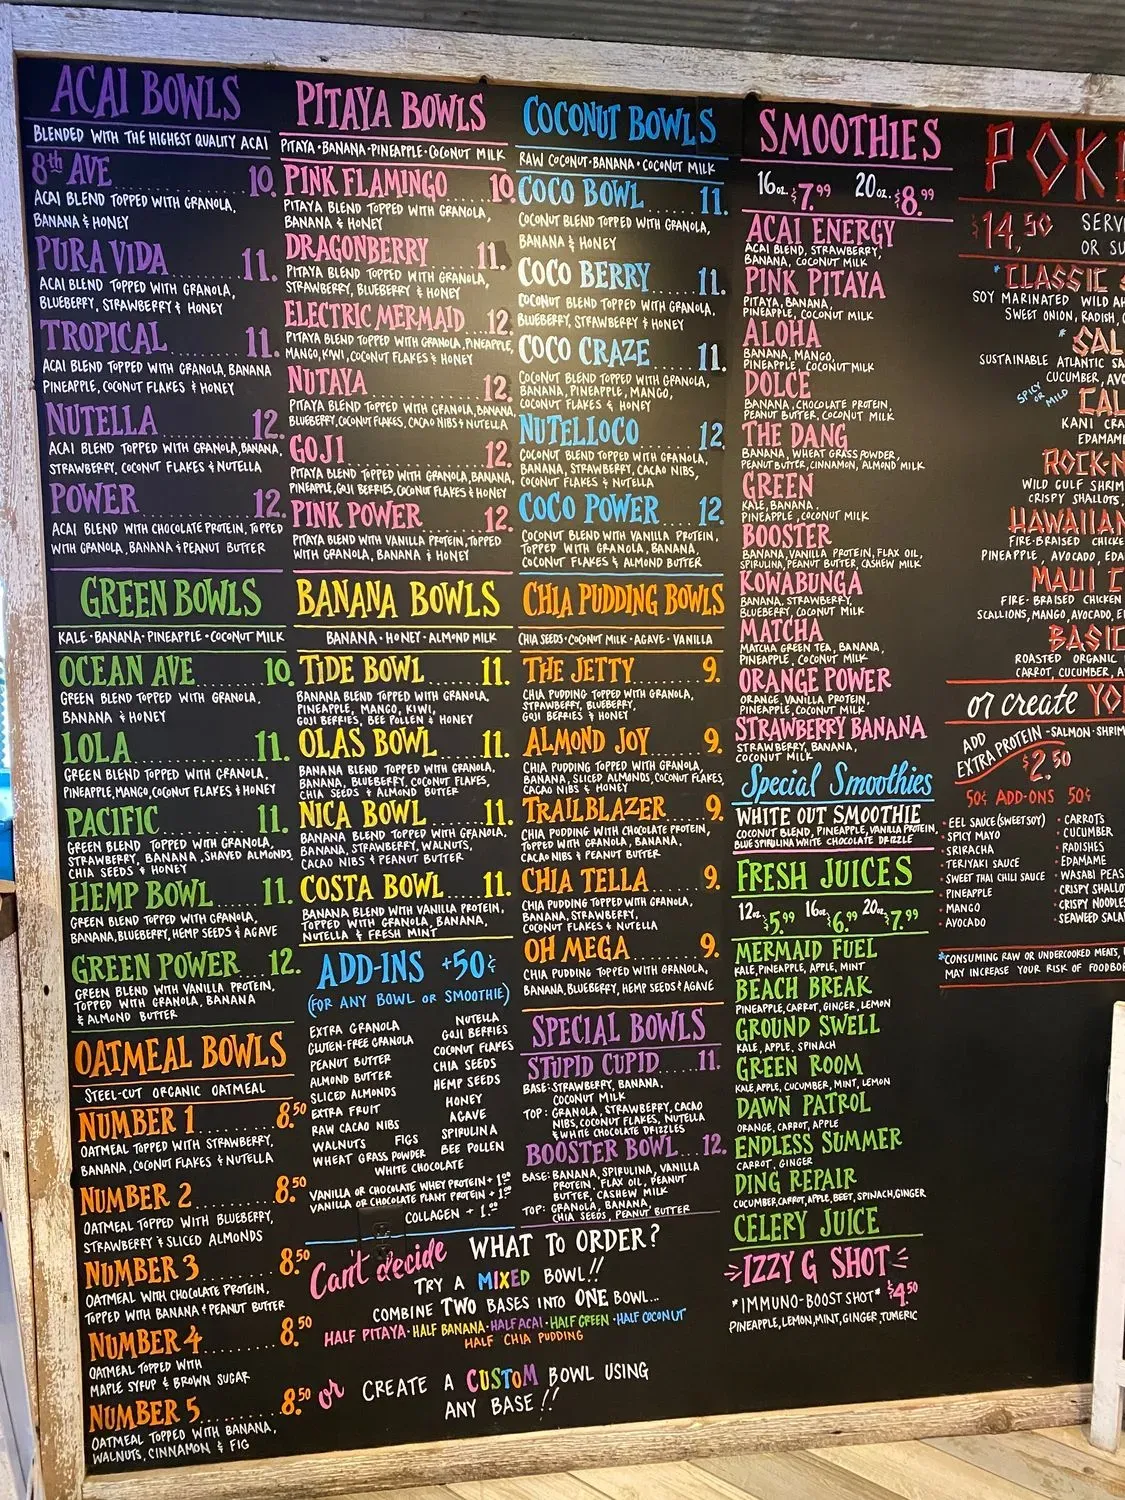 ACAI BOWLS
BLENDED WITH THE HIGHEST QUALITY ACAI
8th AVE 10.
ACAI BLEND TOPPED WITH GRANOLA,
BANANA & HONEY
PURA VIDA 11.
ACAI BLEND TOPPED WITH GRANOLA,
BLUEBERRY, STRAWBERRY & HONEY
TROPICAL 11.
ACAI BLEND TOPPED WITH GRANOLA, BANANA
PINEAPPLE, COCONUT FLAKES & HONEY
NUTELLA 12.
ACAI BLEND TOPPED WITH GRANOLA, BANANA,
STRAWBERRY, COCONUT FLAKES & NUTELLA
POWER 12.
ACAI BLEND WITH CHOCOLATE PROTEIN, TOPPED
WITH GRANOLA, BANANA & PEANUT BUTTER
GREEN BOWLS
KALE · BANANA · PINEAPPLE · COCONUT MILK
OCEAN AVE 10.
GREEN BLEND TOPPED WITH GRANOLA,
BANANA & HONEY
LOLA 11.
GREEN BLEND TOPPED WITH GRANOLA,
PINEAPPLE, MANGO, COCONUT FLAKES & HONEY
PACIFIC 11.
GREEN BLEND TOPPED WITH GRANOLA,
STRAWBERRY, BANANA, SHAVED ALMONDS,
CHIA SEEDS & HONEY
HEMP BOWL 11.
GREEN BLEND TOPPED WITH GRANOLA,
BANANA, BLUEBERRY, HEMP SEEDS & AGAVE
GREEN POWER 12.
GREEN BLEND WITH VANILLA PROTEIN,
TOPPED WITH GRANOLA, BANANA
& ALMOND BUTTER
OATMEAL BOWLS
STEEL-CUT ORGANIC OATMEAL
NUMBER 1 8.50
OATMEAL TOPPED WITH STRAWBERRY,
BANANA, COCONUT FLAKES & NUTELLA
NUMBER 2 8.50
OATMEAL TOPPED WITH BLUEBERRY,
STRAWBERRY & SLICED ALMONDS
NUMBER 3 8.50
OATMEAL WITH CHOCOLATE PROTEIN,
TOPPED WITH BANANA & PEANUT BUTTER
NUMBER 4 8.50
OATMEAL TOPPED WITH
MAPLE SYRUP & BROWN SUGAR
NUMBER 5 8.50
OATMEAL TOPPED WITH BANANA,
WALNUTS, CINNAMON & FIG
PITAYA BOWLS
PITAYA · BANANA · PINEAPPLE · COCONUT MILK
PINK FLAMINGO 10.
PITAYA BLEND TOPPED WITH GRANOLA,
BANANA & HONEY
DRAGONBERRY 11.
PITAYA BLEND TOPPED WITH GRANOLA,
STRAWBERRY, BLUEBERRY & HONEY
ELECTRIC MERMAID 12.
PITAYA BLEND TOPPED WITH GRANOLA, PINEAPPLE,
MANGO, KIWI, COCONUT FLAKES & HONEY
NUTAYA 12.
PITAYA BLEND TOPPED WITH GRANOLA, BANANA,
BLUEBERRY, COCONUT FLAKES, CACAO NIBS & NUTELLA
GOJI 12.
PITAYA BLEND TOPPED WITH GRANOLA, BANANA,
PINEAPPLE, GOJI BERRIES, COCONUT FLAKES & HONEY
PINK POWER 12.
PITAYA BLEND WITH VANILLA PROTEIN, TOPPED
WITH GRANOLA, BANANA & HONEY
BANANA BOWLS
BANANA · HONEY · ALMOND MILK
TIDE BOWL 11.
BANANA BLEND TOPPED WITH GRANOLA,
PINEAPPLE, MANGO, KIWI,
GOJI BERRIES, BEE POLLEN & HONEY
OLAS BOWL 11.
BANANA BLEND TOPPED WITH GRANOLA,
BANANA, BLUEBERRY, COCONUT FLAKES,
CHIA SEEDS & ALMOND BUTTER
NICA BOWL 11.
BANANA BLEND TOPPED WITH GRANOLA,
BANANA, STRAWBERRY, WALNUTS,
CACAO NIBS & PEANUT BUTTER
COSTA BOWL 11.
BANANA BLEND WITH VANILLA PROTEIN,
TOPPED WITH GRANOLA, BANANA,
NUTELLA & FRESH MINT
ADD-INS +50¢
(FOR ANY BOWL OR SMOOTHIE)
EXTRA GRANOLA
GLUTEN-FREE GRANOLA
PEANUT BUTTER
ALMOND BUTTER
SLICED ALMONDS
EXTRA FRUIT
RAW CACAO NIBS
WALNUTS FIGS
WHEAT GRASS POWDER
NUTELLA
GOJI BERRIES
COCONUT FLAKES
CHIA SEEDS
HEMP SEEDS
HONEY
AGAVE
SPIRULINA
BEE POLLEN
WHITE CHOCOLATE
VANILLA OR CHOCOLATE WHEY PROTEIN + 1.00
VANILLA OR CHOCOLATE PLANT PROTEIN + 1.50
COLLAGEN + 1.00
Can't decide WHAT TO ORDER?
TRY A MIXED BOWL!!
COMBINE TWO BASES INTO ONE BOWL...
HALF PITAYA · HALF BANANA · HALF ACAI · HALF GREEN · HALF COCONUT
HALF CHIA PUDDING
or CREATE A CUSTOM BOWL USING
ANY BASE!!
COCONUT BOWLS
RAW COCONUT · BANANA · COCONUT MILK
COCO BOWL 11.
COCONUT BLEND TOPPED WITH GRANOLA,
BANANA & HONEY
COCO BERRY 11.
COCONUT BLEND TOPPED WITH GRANOLA,
BLUEBERRY, STRAWBERRY & HONEY
COCO CRAZE 11.
COCONUT BLEND TOPPED WITH GRANOLA,
BANANA, PINEAPPLE, MANGO,
COCONUT FLAKES & HONEY
NUTELLOCO 12
COCONUT BLEND TOPPED WITH GRANOLA,
BANANA, STRAWBERRY, CACAO NIBS,
COCONUT FLAKES & NUTELLA
COCO POWER 12.
COCONUT BLEND WITH VANILLA PROTEIN,
TOPPED WITH GRANOLA, BANANA,
COCONUT FLAKES & ALMOND BUTTER
CHIA PUDDING BOWLS
CHIA SEEDS · COCONUT MILK · AGAVE · VANILLA
THE JETTY 9.
CHIA PUDDING TOPPED WITH GRANOLA,
STRAWBERRY, BLUEBERRY,
GOJI BERRIES & HONEY
ALMOND JOY 9.
CHIA PUDDING TOPPED WITH GRANOLA,
BANANA, SLICED ALMONDS, COCONUT FLAKES,
CACAO NIBS & HONEY
TRAILBLAZER 9.
CHIA PUDDING WITH CHOCOLATE PROTEIN,
TOPPED WITH GRANOLA, BANANA,
CACAO NIBS & PEANUT BUTTER
CHIA TELLA 9.
CHIA PUDDING TOPPED WITH GRANOLA,
BANANA, STRAWBERRY,
COCONUT FLAKES & NUTELLA
OH MEGA 9.
CHIA PUDDING TOPPED WITH GRANOLA,
BANANA, BLUEBERRY, HEMP SEEDS & AGAVE
SPECIAL BOWLS
STUPID CUPID 11.
BASE: STRAWBERRY, BANANA,
COCONUT MILK
TOP: GRANOLA, STRAWBERRY, CACAO
NIBS, COCONUT FLAKES, NUTELLA
& WHITE CHOCOLATE DRIZZLES
BOOSTER BOWL 12.
BASE: BANANA, SPIRULINA, VANILLA
PROTEIN, FLAX OIL, PEANUT
BUTTER, CASHEW MILK
TOP: GRANOLA, BANANA,
CHIA SEEDS, PEANUT BUTTER
SMOOTHIES
16oz. $7.99 20oz. $8.99
ACAI ENERGY
ACAI BLEND, STRAWBERRY,
BANANA, COCONUT MILK
PINK PITAYA
PITAYA, BANANA,
PINEAPPLE, COCONUT MILK
ALOHA
BANANA, MANGO,
PINEAPPLE, COCONUT MILK
DOLCE
BANANA, CHOCOLATE PROTEIN,
PEANUT BUTTER, COCONUT MILK
THE DANG
BANANA, WHEAT GRASS POWDER,
PEANUT BUTTER, CINNAMON, ALMOND MILK
GREEN
KALE, BANANA,
PINEAPPLE, COCONUT MILK
BOOSTER
BANANA, VANILLA PROTEIN, FLAX OIL,
SPIRULINA, PEANUT BUTTER, CASHEW MILK
KOWABUNGA
BANANA, STRAWBERRY,
BLUEBERRY, COCONUT MILK
MATCHA
MATCHA GREEN TEA, BANANA,
PINEAPPLE, COCONUT MILK
ORANGE POWER
ORANGE, VANILLA PROTEIN,
PINEAPPLE, COCONUT MILK
STRAWBERRY BANANA
STRAWBERRY, BANANA,
COCONUT MILK
Special Smoothies
WHITE OUT SMOOTHIE
COCONUT BLEND, PINEAPPLE, VANILLA PROTEIN,
BLUE SPIRULINA WHITE CHOCOLATE DRIZZLE
FRESH JUICES
12oz. $5.99 16oz. $6.99 20oz. $7.99
MERMAID FUEL
KALE, PINEAPPLE, APPLE, MINT
BEACH BREAK
PINEAPPLE, CARROT, GINGER, LEMON
GROUND SWELL
KALE, APPLE, SPINACH
GREEN ROOM
KALE, APPLE, CUCUMBER, MINT, LEMON
DAWN PATROL
ORANGE, CARROT, APPLE
ENDLESS SUMMER
CARROT, GINGER
DING REPAIR
CUCUMBER, CARROT, APPLE, BEET, SPINACH, GINGER
CELERY JUICE
IZZY G SHOT
*IMMUNO-BOOST SHOT* $4.50
PINEAPPLE, LEMON, MINT, GINGER, TUMERIC
POK
$14.50 SERV
OR SU
*CLASSIC
SOY MARINATED WILD AH
SWEET ONION, RADISH,
*SAL
SUSTAINABLE ATLANTIC SA
CUCUMBER, AVO
SPICY OR MILD
CAL
KANI CRA
EDAMAME
ROCK-N
WILD GULF SHRIM
CRISPY SHALLOTS,
HAWAIIAN
FIRE-BRAISED CHICKE
PINEAPPLE, AVOCADO, EDA
MAUI C
FIRE-BRAISED CHICKEN
SCALLIONS, MANGO, AVOCADO, E
BASIC
ROASTED ORGANIC
CARROT, CUCUMBER, A
or create YO
ADD
EXTRA PROTEIN - SALMON · SHRIM
$2.50
50¢ ADD-ONS 50¢
· EEL SAUCE (SWEET SOY)
· SPICY MAYO
· SRIRACHA
· TERIYAKI SAUCE
· SWEET THAI CHILI SAUCE
· PINEAPPLE
· MANGO
· AVOCADO
· CARROTS
· CUCUMBER
· RADISHES
· EDAMAME
· WASABI PEAS
· CRISPY SHALLO
· CRISPY NOODLES
· SEAWEED SALA
*CONSUMING RAW OR UNDERCOOKED MEATS,
MAY INCREASE YOUR RISK OF FOODBO